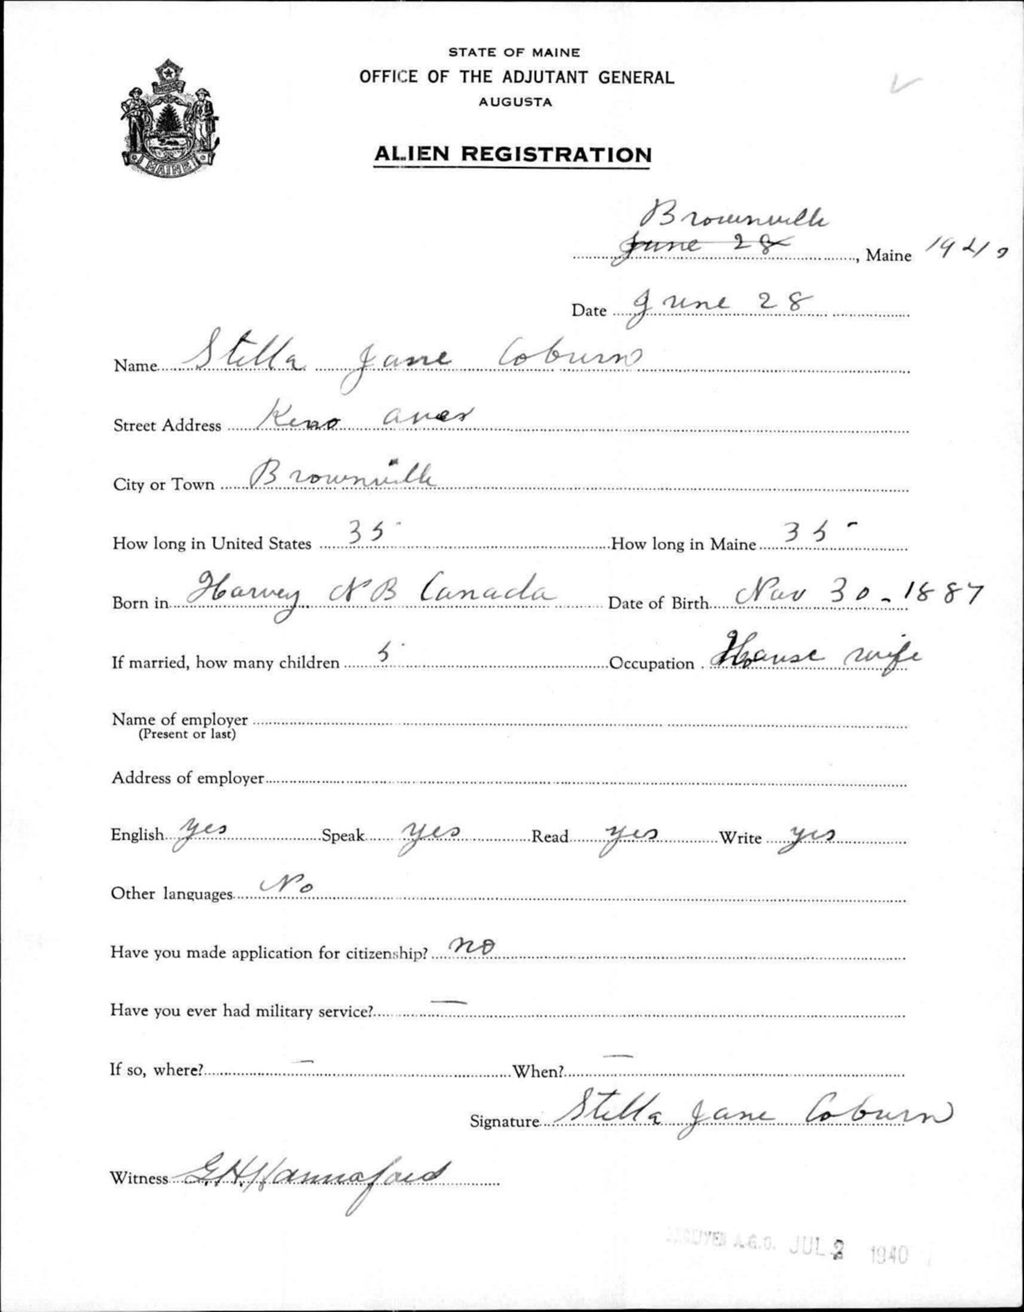 STATE OF MAINE
OFFICE OF THE ADJUTANT GENERAL
AUGUSTA
ALIEN REGISTRATION
MAINE
Brownville
June 28, Maine 1940
Date June 28
Name Stella Jane Coburn
Street Address Keno
City or Town Brownville
How long in United States 35 How long in Maine 35
Born in Harvey N B Canada Date of Birth Nov 30 - 1887
If married, how many children 5 Occupation House wife
Name of employer
(Present or last)
Address of employer
English yes Speak yes Read yes Write yes
Other languages No
Have you made application for citizenship? no
Have you ever had military service? —
If so, where? — When? —
Signature Stella Jane Coburn
Witness G.H. Hannaford
RECEIVED A.G.O. JUL 2 1940